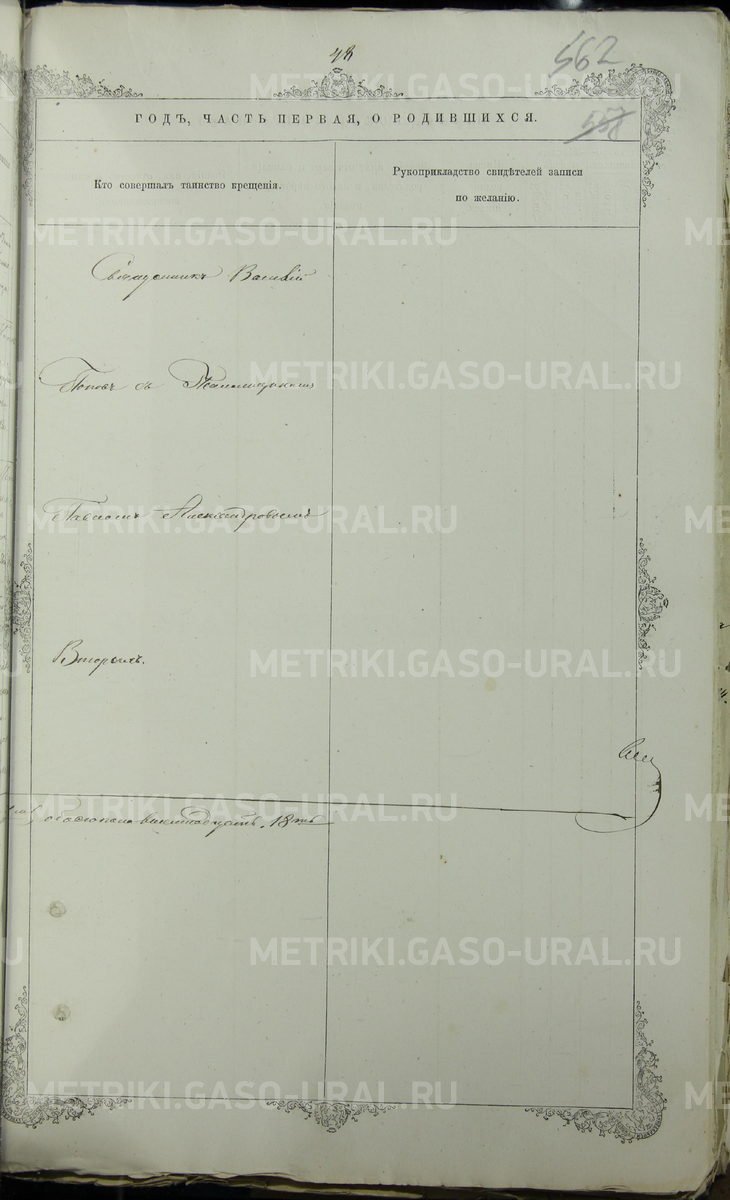 48
562
558
ГОДЪ, ЧАСТЬ ПЕРВАЯ, О РОДИВШИХСЯ.
Кто совершалъ таинство крещенія.
Рукоприкладство свидѣтелей записи
по желанію.
Священникъ Василій
Поповъ съ Псаломщикомъ
Павломъ Александровскимъ
Вторымъ.
18
METRIKI.GASO-URAL.RU